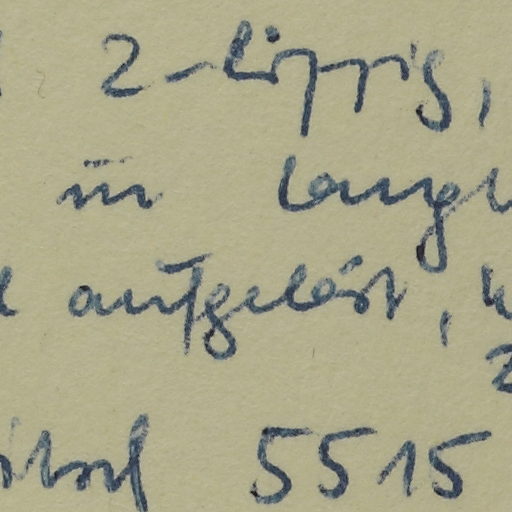 2-lippig,
in lang
aufgelöst,
5515